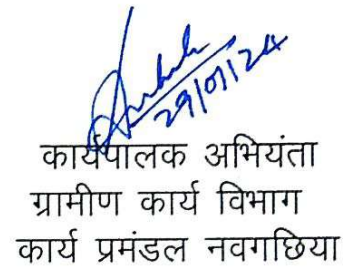 29/01/24
कार्यपालक अभियंता
ग्रामीण कार्य विभाग
कार्य प्रमंडल नवगछिया